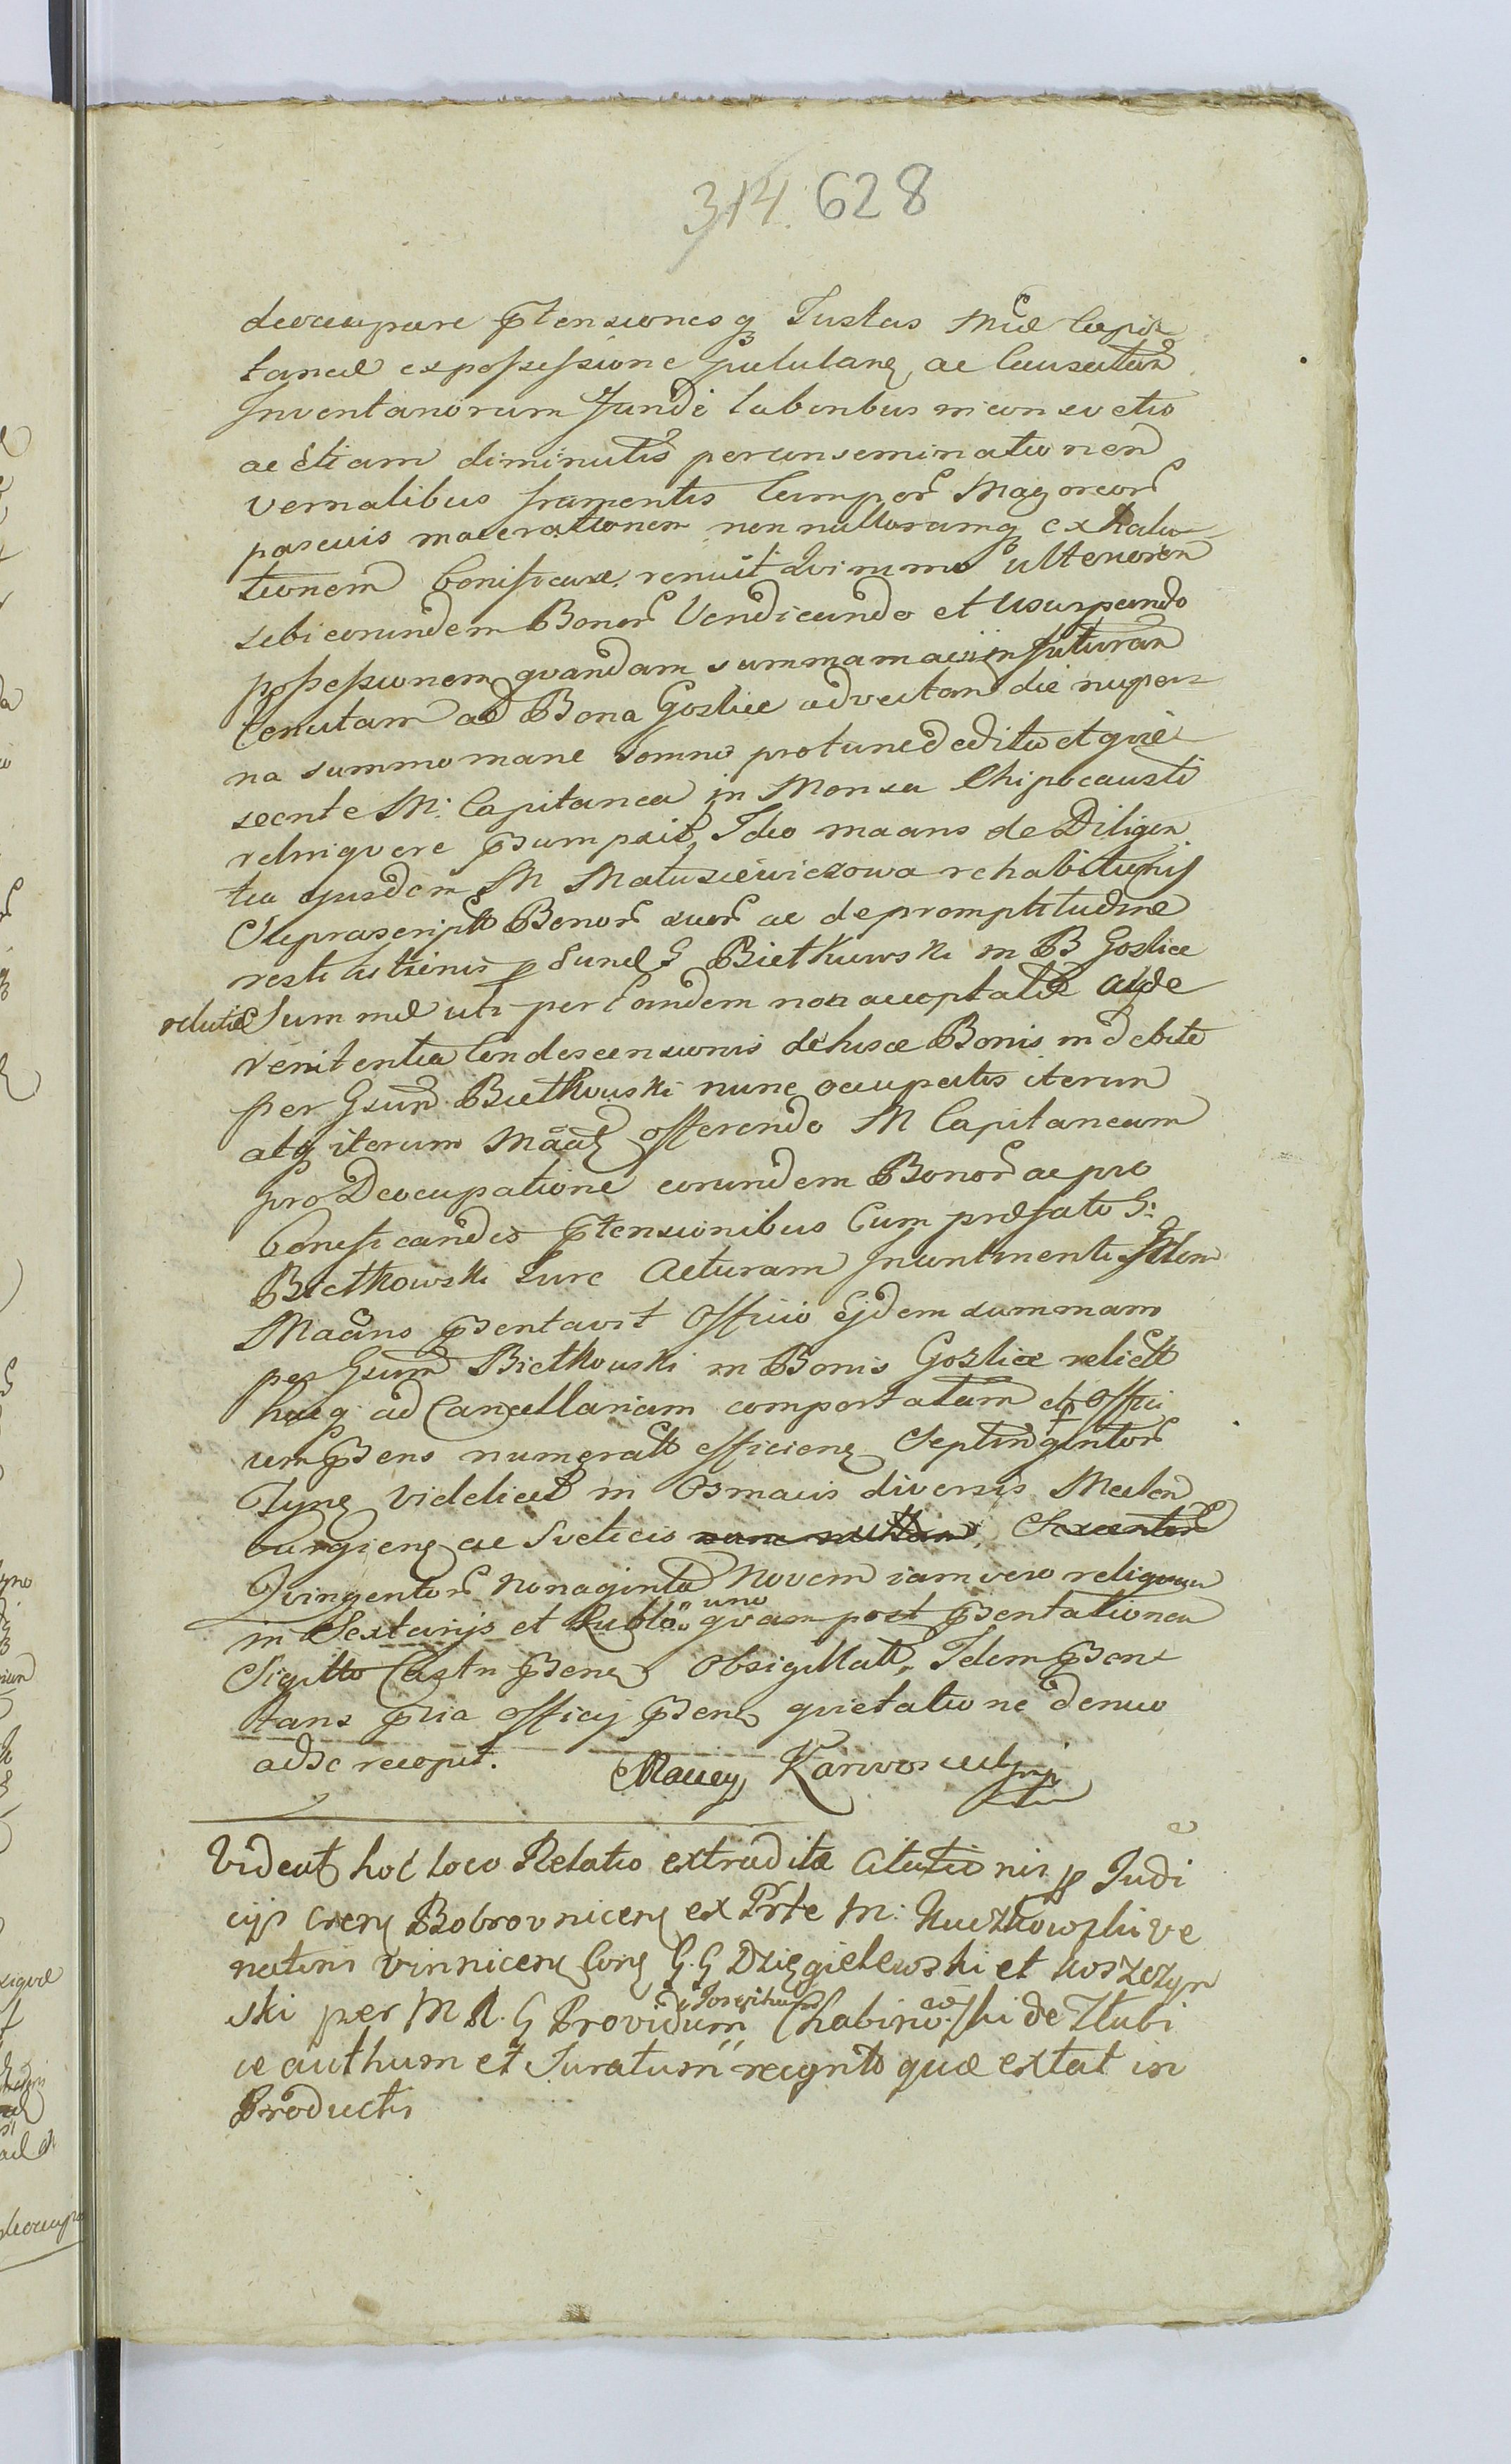 314. 628
deoccupare ptensionesq Justas Mcae Capi
taneae expossessione pululanq ac Causatam
Inventariorum fundi laboribus in consvetis
ac etiam diminutis per conseminationem
vernalibus frumentis Campor Mag
pascuis macerationem nonnullorumq exhalu
tionem bonificare renuit Qvinimo ulteriorem
sibi eorundem Bonor Vendicando et Usurpando
possessionem qvandam summam in futuram
tenutam ad Bona Gozlice advectam die nuper
na summo mane somno protunc dedita et qvie
scente M: Capitanea in Mensa Chipocausti
relinqvere psumpsit, Ideo maans de Diligen
tia ejusdem M Matusiewiczowa rehabitionis
Supra script Bonor suor ac de promptitudine
restitutionis p eund G Bietkowski in B Gozlice
relictae Summae uti per Eandem non acceptatae ac de
renitentia Condescensionis de hisce Bonis indebite
per Gsum Bietkowski nunc occupatis iterum
atq iterum Maat offerendo M Capitaneam
pro Deocupatione eorundem Bonor ac pro
bonificandis ptensionibus Cum praefato G:
Bietkowski Jure Acturam Incontinenti Idem
Maans psentavit Officio Ejdem summam
per Gsum Bietkowski in Bonis Gozlice relict
hucq ad Cancellariam comportatam et p Offici
um psens numerat efficienq Septingentor
Tynq videlicet in Osmacis diversis Meclen
burgienq ac Sveticis Sexcentor
Qvingentor Nonaginta Novem iam vero reliquum
in Sextarijs et Rublo uno qvam post psentationem
Sigillo Castri psenq Obsigillatt, Idem psen
tans pvia officij psentq qvietatione denuo
ad se recepit. Maciey Karwosiecki mp
Videat hoc loco Relatio extraditae Citationis p Judi
cijs Crenq Bobrovnicenq ex Prte M: Kuczkowski ve
natoris Vinnicenq Conq G.G Dzięgielewski et Koszczyn
ski per M R. G Providum Josephum Chabinowski de Złubi
ce authum et Juratum recgnto quae extat in
Productis